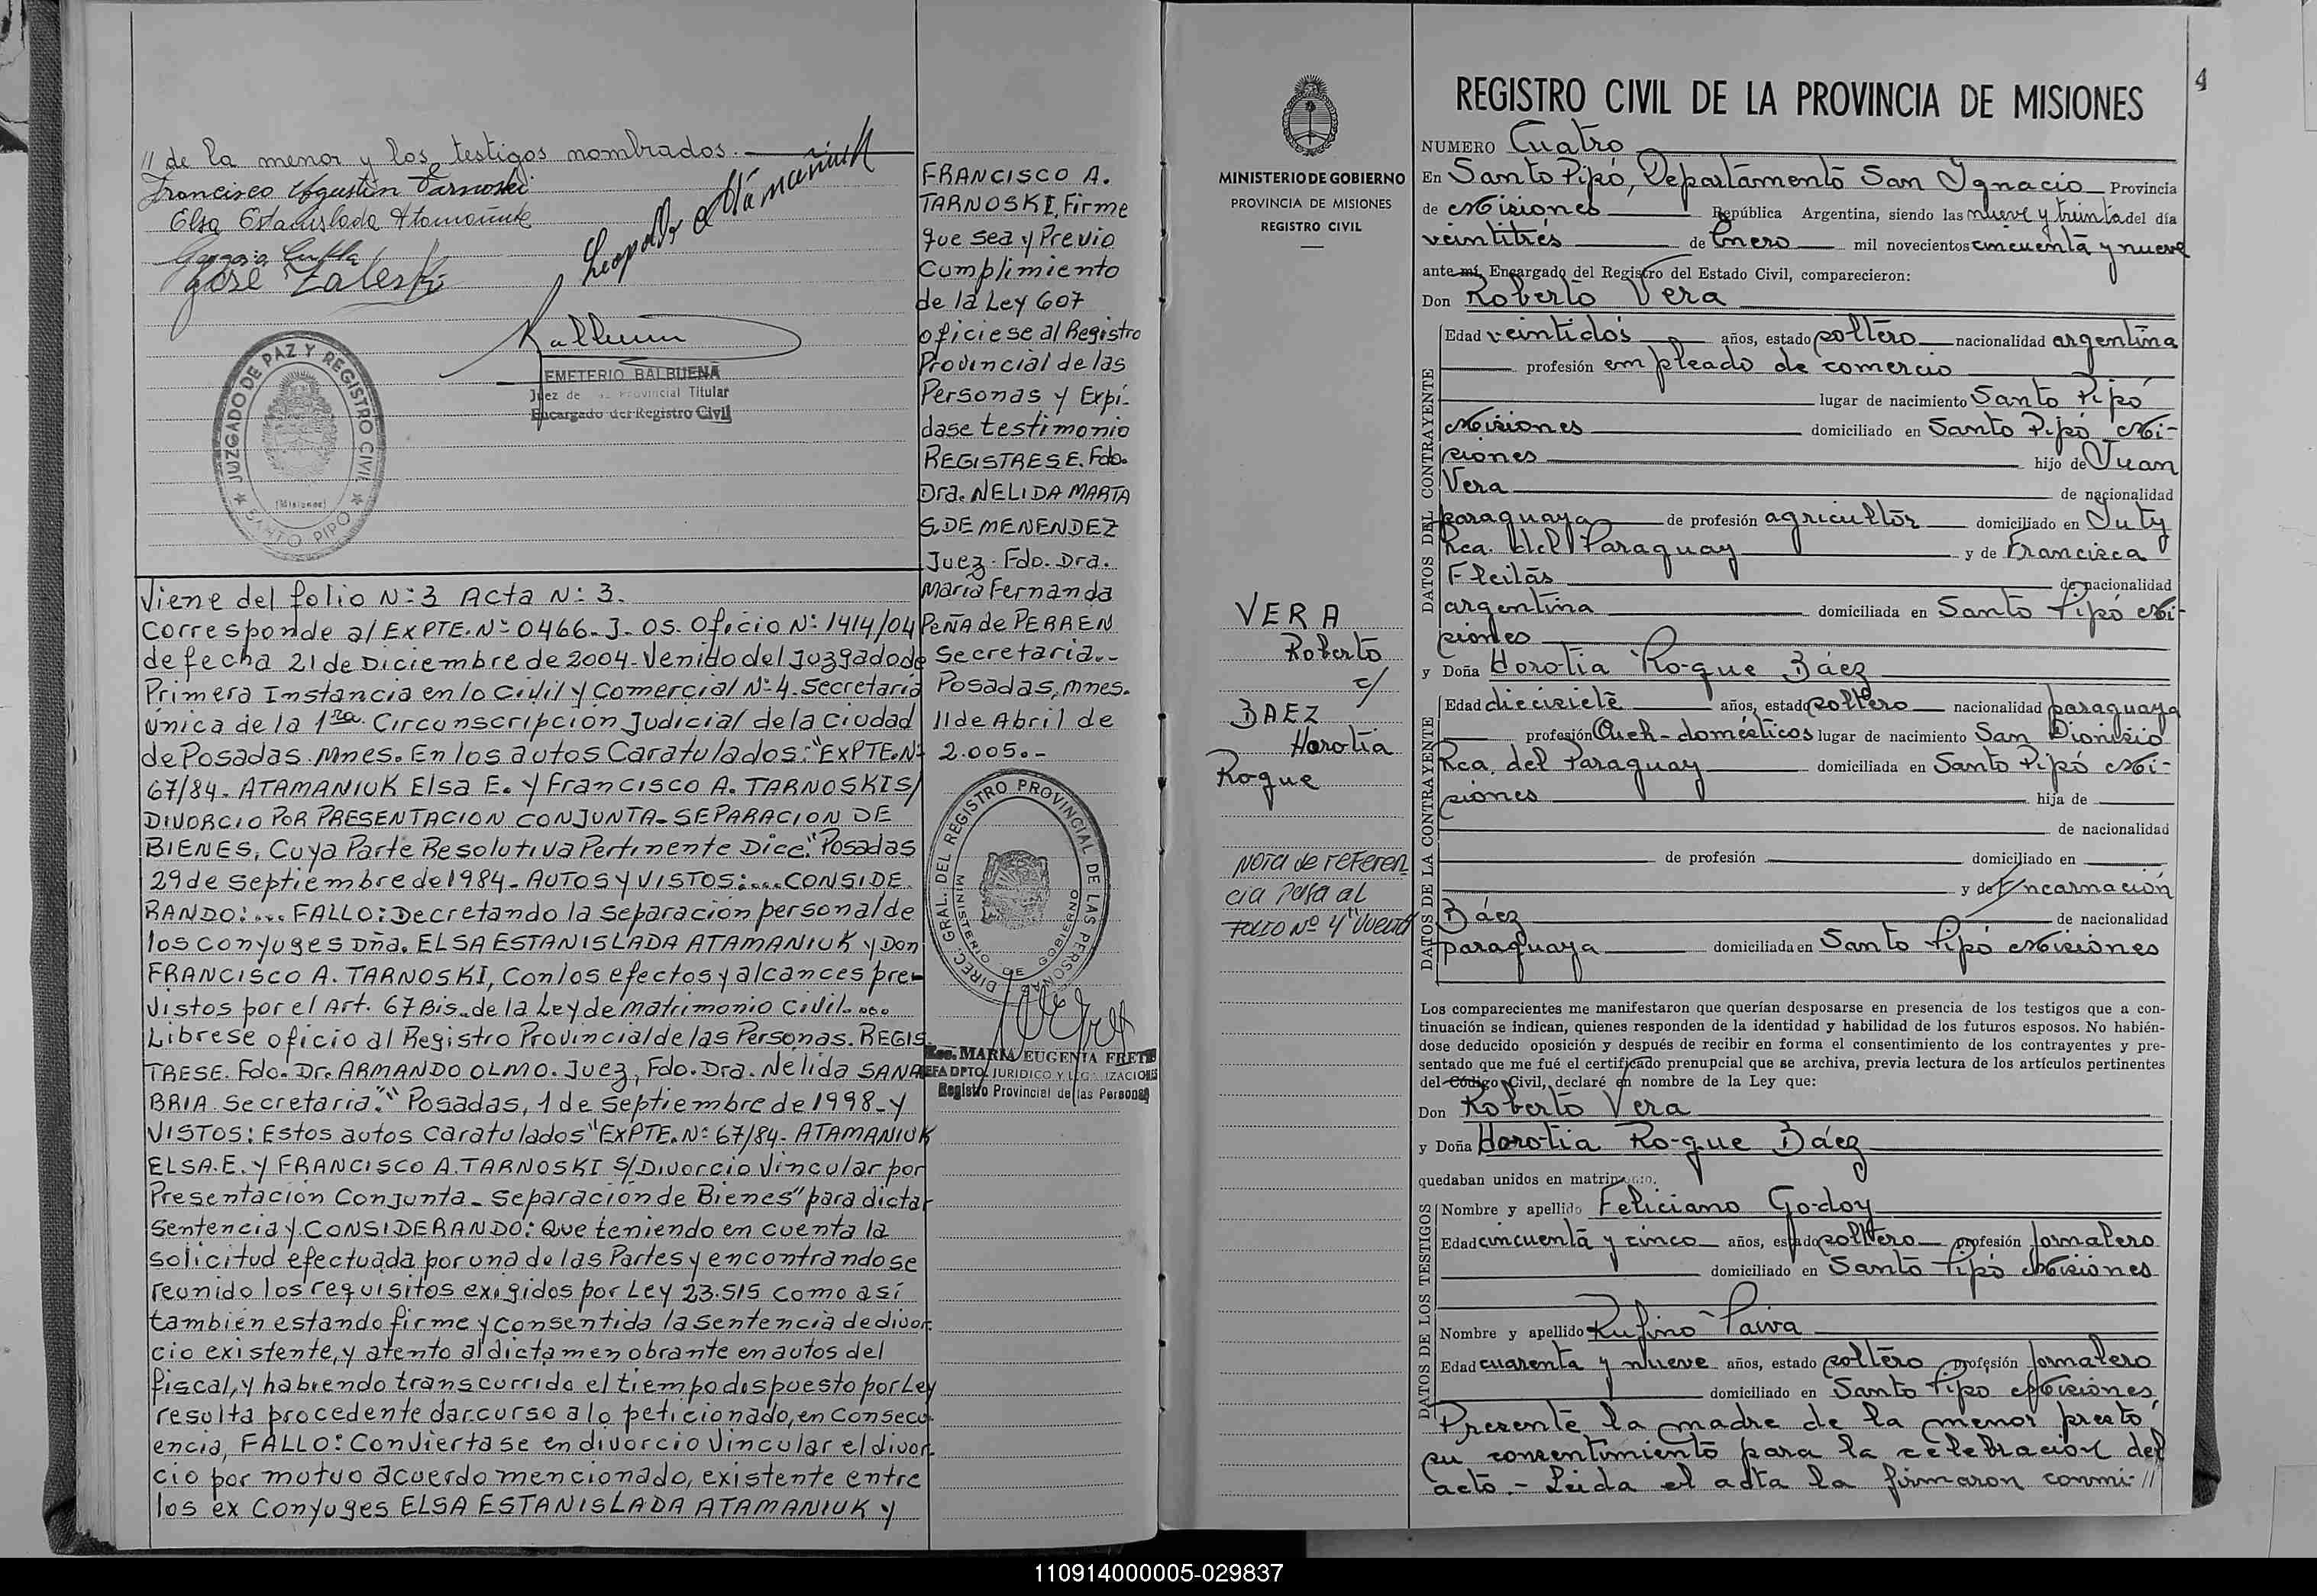 // de la menor y los testigos nombrados.
Francisco Agustin Tarnoski
Elsa Estanislada Atamañuk
José Zaleski
Leopoldo Atamañuk
EMETERIO BALBUENA
Juez de Provincial Titular
Encargado del Registro Civil
JUZGADO DE PAZ Y REGISTRO CIVIL
(Misiones)
SANTO PIPO
Viene del folio Nº 3 Acta Nº 3.
Corresponde al EXPTE. Nº 0466-J-05. Oficio Nº 1414/04
de fecha 21 de Diciembre de 2004- Venido del Juzgado de
Primera Instancia en lo Civil y Comercial Nº 4- Secretaria
Unica de la 1ra. Circunscripción Judicial de la Ciudad
de Posadas. Mnes. En los autos Caratulados: "EXPTE. Nº
67/84- ATAMANIUK Elsa E. y Francisco A. TARNOSKI S/
DIVORCIO POR PRESENTACION CONJUNTA- SEPARACION DE
BIENES, Cuya Parte Resolutiva Pertinente Dice: "Posadas
29 de Septiembre de 1984- AUTOS Y VISTOS:.... CONSIDE
RANDO:.... FALLO: Decretando la separación personal de
los conyuges Dña. ELSA ESTANISLADA ATAMANIUK y Don
FRANCISCO A. TARNOSKI, Con los efectos y alcances pre-
vistos por el Art. 67 Bis.. de la Ley de Matrimonio Civil....
Librese oficio al Registro Provincial de las Personas. REGIS
TRESE. Fdo. Dr. ARMANDO OLMO. Juez, Fdo. Dra. Nelida SANA
BRIA. Secretaria." "Posadas, 1 de Septiembre de 1998- Y
VISTOS: Estos autos caratulados "EXPTE. Nº 67/84- ATAMANIUK
ELSA. E. y FRANCISCO A. TARNOSKI S/ Divorcio Vincular por
Presentación Conjunta- Separación de Bienes" para dictar
Sentencia y. CONSIDERANDO: Que teniendo en cuenta la
solicitud efectuada por una de las Partes y encontrandose
reunido los requisitos exigidos por Ley 23.515 como así
tambien estando firme y consentida la sentencia de divor-
cio existente, y atento al dictamen obrante en autos del
fiscal, y habiendo transcurrido el tiempo dispuesto por Ley
resulta procedente dar curso a lo peticionado, en consecu-
encia, FALLO: Conviertase en divorcio Vincular el divor-
cio por mutuo acuerdo mencionado, existente entre
los ex Conyuges ELSA ESTANISLADA ATAMANIUK y
FRANCISCO A.
TARNOSKI, Firme
que sea y Previo
Cumplimiento
de la Ley 607
oficiese al Registro
Provincial de las
Personas y Expi-
dase testimonio
REGISTRESE. Fdo.
Dra. NELIDA MARTA
S. DE MENENDEZ
Juez. Fdo. Dra.
Maria Fernanda
PEÑA de PERREN
Secretaria.-
Posadas, Mnes.
11 de Abril de
2.005.-
DIREC. GRAL. DEL REGISTRO PROVINCIAL DE LAS PERSONAS
MINISTERIO DE GOBIERNO
Esc. MARIA EUGENIA FRETE
JEFA DPTO. JURIDICO Y LEGALIZACIONES
Registro Provincial de las Personas
4
MINISTERIO DE GOBIERNO
PROVINCIA DE MISIONES
REGISTRO CIVIL
VERA
Roberto
c/
BAEZ
Horotia
Roque
Nota de referen
cia pasa al
FOLIO Nº 4 "Vuelto
REGISTRO CIVIL DE LA PROVINCIA DE MISIONES
NUMERO Cuatro
En Santo Pipó, Departamento San Ignacio Provincia
de Misiones República Argentina, siendo las nueve y treinta del día
veintitrés de Enero mil novecientos cincuenta y nueve
ante mí, Encargado del Registro del Estado Civil, comparecieron:
Don Roberto Vera
DATOS DEL CONTRAYENTE
Edad veintidós años, estado soltero nacionalidad argentina
profesión empleado de comercio
lugar de nacimiento Santo Pipó
Misiones domiciliado en Santo Pipó Mi-
siones hijo de Juan
Vera de nacionalidad
paraguaya de profesión agricultor domiciliado en Yuty
Rca. del Paraguay y de Francisca
Fleitas de nacionalidad
argentina domiciliada en Santo Pipó Mi-
siones
y Doña Horotia Roque Báez
DATOS DE LA CONTRAYENTE
Edad diecisiete años, estado soltero nacionalidad paraguaya
profesión Queh-domésticos lugar de nacimiento San Dionisio
Rca. del Paraguay domiciliada en Santo Pipó Mi-
siones hija de
de nacionalidad
de profesión domiciliado en
y de Encarnación
Báez de nacionalidad
paraguaya domiciliada en Santo Pipó Misiones
Los comparecientes me manifestaron que querían desposarse en presencia de los testigos que a con-
tinuación se indican, quienes responden de la identidad y habilidad de los futuros esposos. No habién-
dose deducido oposición y después de recibir en forma el consentimiento de los contrayentes y pre-
sentado que me fué el certificado prenupcial que se archiva, previa lectura de los artículos pertinentes
del Código Civil, declaré en nombre de la Ley que:
Don Roberto Vera
y Doña Horotia Roque Báez
quedaban unidos en matrimonio.
DATOS DE LOS TESTIGOS
Nombre y apellido Feliciano Godoy
Edad cincuenta y cinco años, estado soltero profesión jornalero
domiciliado en Santo Pipó Misiones
Nombre y apellido Rufino Paiva
Edad cuarenta y nueve años, estado soltero profesión jornalero
domiciliado en Santo Pipo Misiones
Presente la madre de la menor prestó
su consentimiento para la celebración del
acto.- Leida el acta la firmaron conmi- //
110914000005-029837